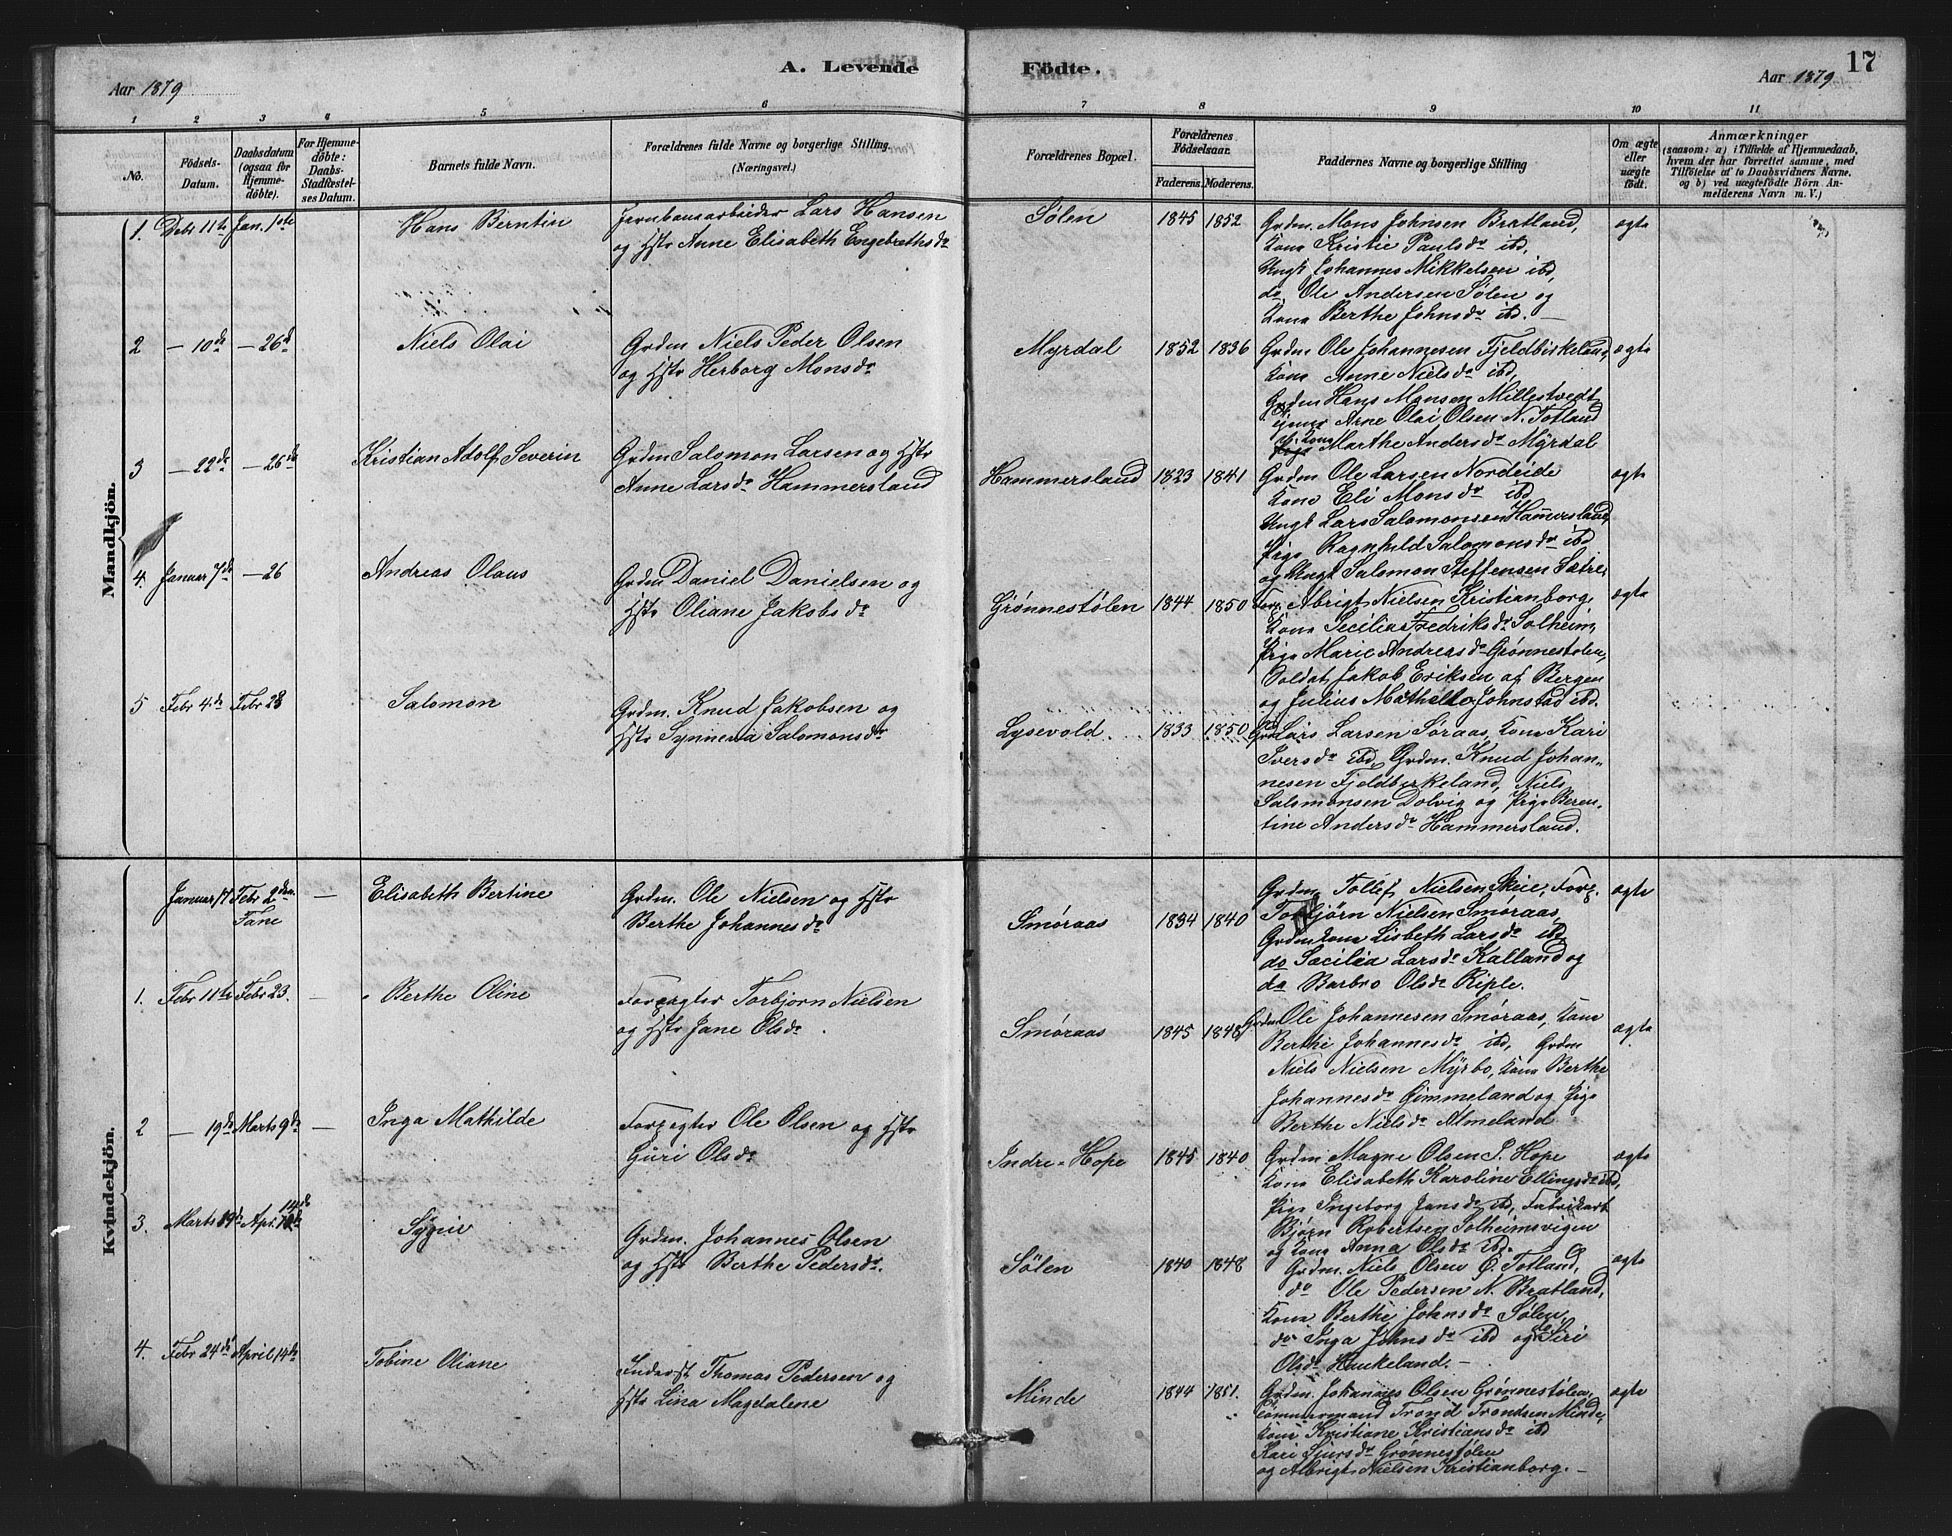 17
A. Levende Födte.
Aar 1879
Aar 1879
1 2 3 4 5 6 7 8 9 10 11
No.
Födsels-Datum.
Daabsdatum (ogsaa for Hjemmedöbte).
For Hjemmedöbte: Daabs-Stadfæstelses Datum.
Barnets fulde Navn.
Forældrenes fulde Navne og borgerlige Stilling. (Næringsvei.)
Forældrenes Bopæl.
Forældrenes Födselsaar.
Faderens. Moderens.
Faddernes Navne og borgerlige Stilling
Om ægte eller uægte födt.
Anmærkninger
(saasom: a) i Tilfælde af Hjemmedaab,
hvem der har forrettet samme, med
Tilföielse af to Daabsvidners Navne,
og b) ved uægtefödte Börn An-
melderens Navn m. V.)
Mandkjön.
1. Debr 11te Jan. 1ste Hans Berntin
Jernbanearbeider Lars Hansen
og Hstr Anne Elisabeth Engebrethsdr
Sølen 1845 1852
Grdm. Mons Johnsen Bratland,
Kone Kristie Paulsdr ibd,
Ungk Johannes Mikkelsen ibd,
do Ole Andersen Sølen og
Kone Berthe Johnsdr ibd. —
ægte
2 — 10de — 26d Niels Olai
Grdm Niels Peder Olsen
og Hstr Herborg Monsdr
Myrdal 1852 1836
Grdm Ole Johannesen Fjeldbirkeland,
Kone Anne Nielsdr ibd,
Grdm Hans Monsen Millestvedt
Arne Olai Olsen N. Totland
Kone Marthe Andersdr Myrdal
ægte
3 — 22de — 26de Kristian Adolf Severin
Grdm Salomon Larsen og Hstr
Anne Larsdr Hammersland
Hammersland 1823 1841
Grdm Ole Larsen Nordeide
Kone Eli Monsdr ibd
Ungk Lars Salomonsen Hamersland,
Pige Ragnhild Salomonsdr ibd
og Ungk Salomon Steffensen Sætre,
ægte
4. Januar 7de — 26 Andreas Olaus
Grdm Daniel Danielsen og
Hstr Oliane Jakobsdr
Grønnestølen 1844 1850
Forp. Abrigt Nielsen Kristianborg
Kone Secilia Fredriksdr Solheim,
Pige Marie Andreasdr Grønnestølen,
Soldat Jakob Eriksen af Bergen
og Julius Johnstad ibd.
ægte
5 Febr 4de Febr 23 Salomon
Grdm. Knud Jakobsen og
Hstr Synneva Salomonsdr
Lysevold. 1833 1850
Lars Larsen Søraas, Kone Kari
Iversdr ibd, Grdm. Knud Johan-
nesen Fjeldbirkeland, Niels
Salomonsen Dolvig og Pige Beren-
tine Andersdr Hammersland.
Kvindekjön.
Januar 17 Febr 2den Fane — Elisabeth Bertine
Grdm. Ole Nielsen og Hstr
Berthe Johannesdr
Smøraas 1834 1840
Grdm Tollef Nielsen Skeie, Forp.
Torbjørn Nielsen Smøraas,
Grdmkone Lisbeth Larsdr ibd,
do Sæcilia Larsdr Kalland og
do Barbro Olsdr Riple.
ægte
1. Febr 11te Febr 23. — Berthe Oline
Forpagter Torbjørn Nielsen
og Hstr Jane Olsdr
Smøraas 1845 1848
Grdm Ole Johannesen Smøraas, Kone
Berthe Johannesdr ibd, Grdm
Niels Nielsen Myrbo, Kone Berthe
Johannesdr Gimmeland og Pige
Berthe Nielsdr Almeland
ægte
2 — 19de Marts 9de — Inga Mathilde
Forpagter Ole Olsen og Hstr
Guri Olsdr
Indre-Hope 1845 1840
Grdm Magne Olsen I. Hope
Kone Elisabeth Karoline Ellingsdr ibd,
Pige Ingeborg Jansdr ibd, Fabrikarb
Bjørn Robertsen Solheimsvigen
og Kone Anna Olsdr ibd.
ægte
3. Marts 19de Apr. 14de Sygni
Grdm. Johannes Olsen
og Hstr Berthe Pedersdr.
Sølen 1840 1848
Grdm. Niels Olsen Ø. Totland,
do Ole Pedersen N. Bratland,
Kone Berthe Johnsdr Sølen,
do Inga Johnsdr ibd og do Siri
Olsdr Haukeland. —
ægte
4. Febr 24de April 14de Tobine Oliane
Inderst Thomas Pedersen og
Hstr Lina Magdalene
Minde 1844 1851.
Grdm. Johannes Olsen Grønnestølen,
Tømmermand Trond Trondsen Minde,
Kone Kristiane Kristiansdr ibd
Kari Sjursdr Grønnestølen
og Albrigt Nielsen Kristianborg. —
ægte